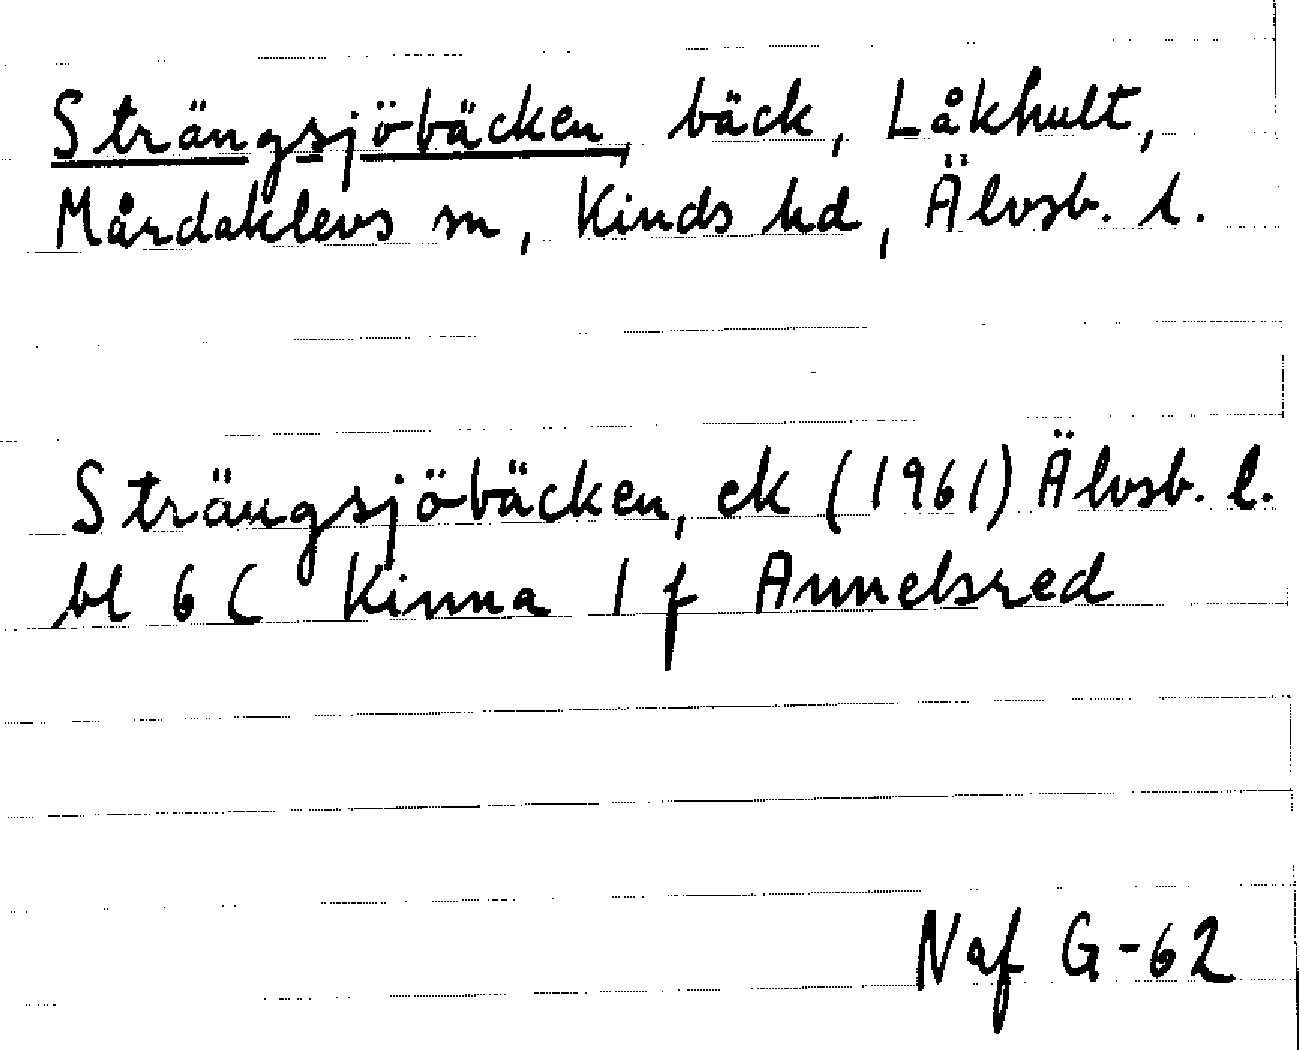 Strängsjöbäcken, bäck, Låkhult,
Mårdaklevs sn, Kinds hd, Älvsb. l.
Strängsjöbäcken, ek (1961) Älvsb. l.
bl 6 C Kinna 1 f Annelsred
Naf G-62